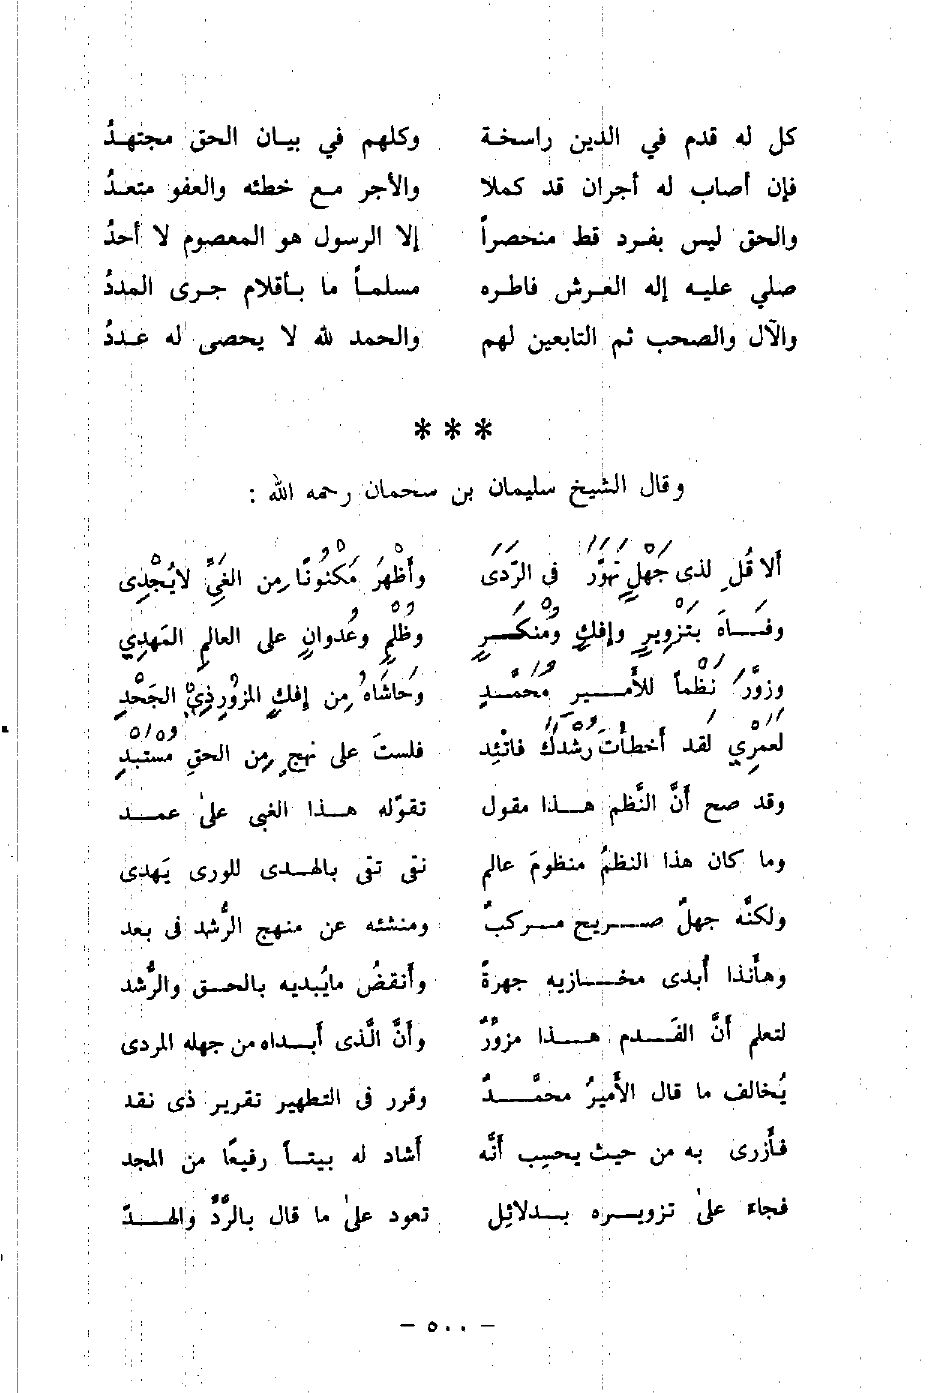 كل له قدم في الدين راسخة وكلهم في بيان الحق مجتهدُ
فإن أصاب له أجران قد كملا والأجر مع خطئه والعفو متعدُ
والحق ليس بفرد قط منحصراً إلا الرسول هو المعصوم لا أحدُ
صلي عليه إله العرش فاطره مسلماً ما بأقلام جرى المددُ
والآل والصحب ثم التابعين لهم والحمد لله لا يحصى له عددُ
***
وقال الشيخ سليمان بن سحمان رحمه الله :
ألا قُل لذى جَهْلٍ تهوَّرَ فى الرّدَى وأَظْهرَ مَكْنُونًا مِن الغَىِّ لايُجْدِى
وفَاهَ بتزويرٍ وإفكٍ ومُنكَرٍ وظُلْمٍ وعُدوانٍ على العالِمِ المَهْدِي
وزوَّرَ نَظْماً للأَمير محمَّدٍ وحَاشَاهُ مِن إفكِ المزوِّرِ ذِيْ الجَحْدِ
لعَمْرِي لقَد أخطأتَ رُشْدكَ فاتَّئِد فلستَ على نهجٍ مِن الحقِ مُسْتَبدٍ
وقد صح أَنَّ النَّظم هذا مقول تقوّله هذا الغبى علىٰ عمد
وما كان هذا النظمُ منظومَ عالم نقى تقى بالهدى للورى يَهدى
ولكنَّه جهلٌ صريح مركبٌ ومنشئه عن منهج الرُّشد فى بعد
وهأَنذا أُبدى مخازيه جهرةً وأَنقضُ مايُبديه بالحق والرُّشد
لتعلم أَنَّ الفَدم هذا مزوّرٌ وأَنَّ الَّذى أَبداه من جهله المردى
يُخالف ما قال الأَميرُ محمَّدٌ وقرر فى التطهير تقرير ذى نقد
فأَزرى به من حيث يحسِب أَنَّه أَشاد له بيتاً رفيعًا من المجد
فجاء علىٰ تزويره بدلائِل تعود علىٰ ما قال بالرَّدِّ والهدّ
– ٥٠٠ –